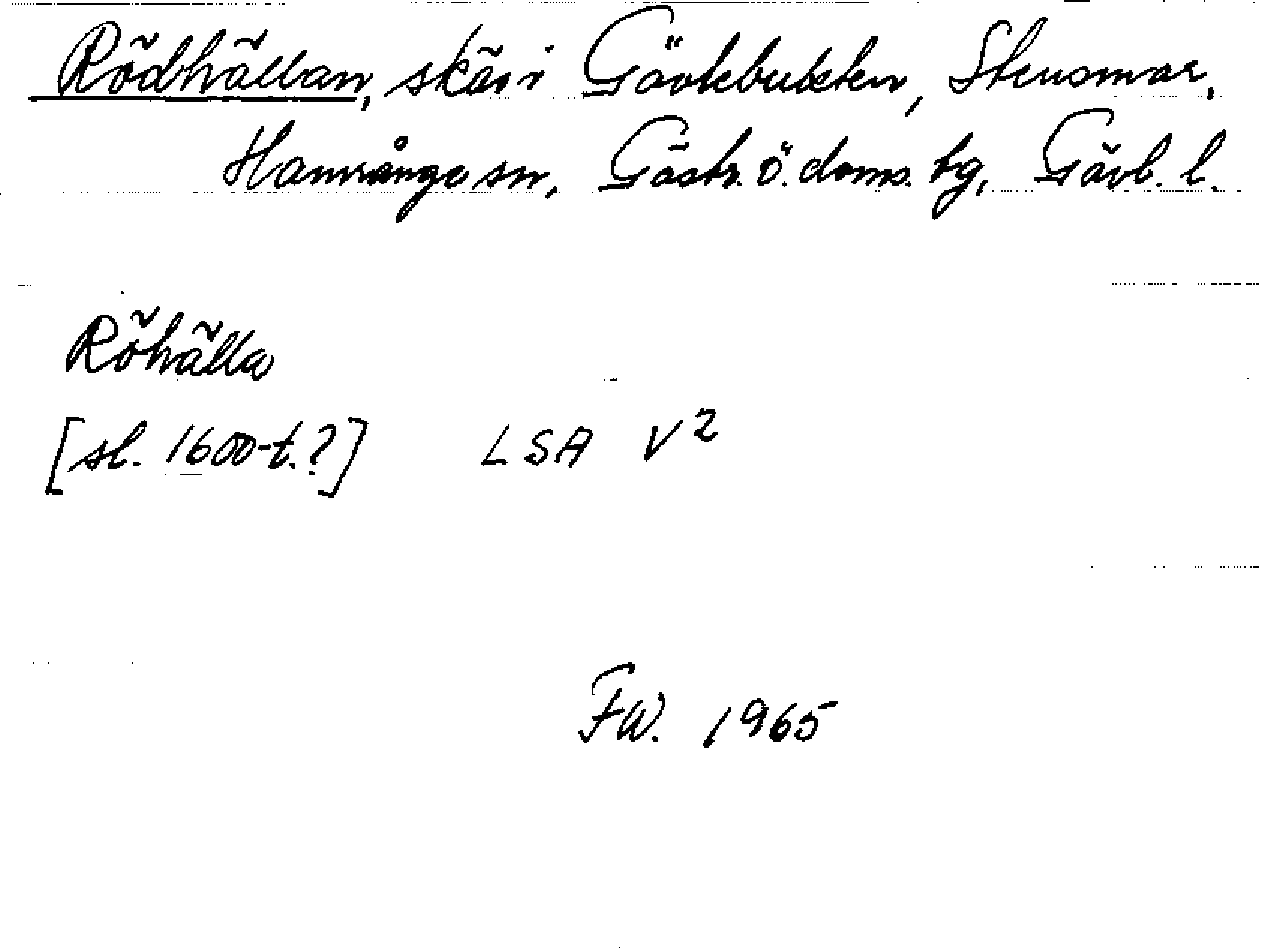 Rödhällan, skär i Gävlebukten, Utnusmar,
Hamrånge sn, Gästr. ö. doms. tg, Gävl. l.
Röhälla
[sl. 1600-t.?] LSA V²
FW. 1965